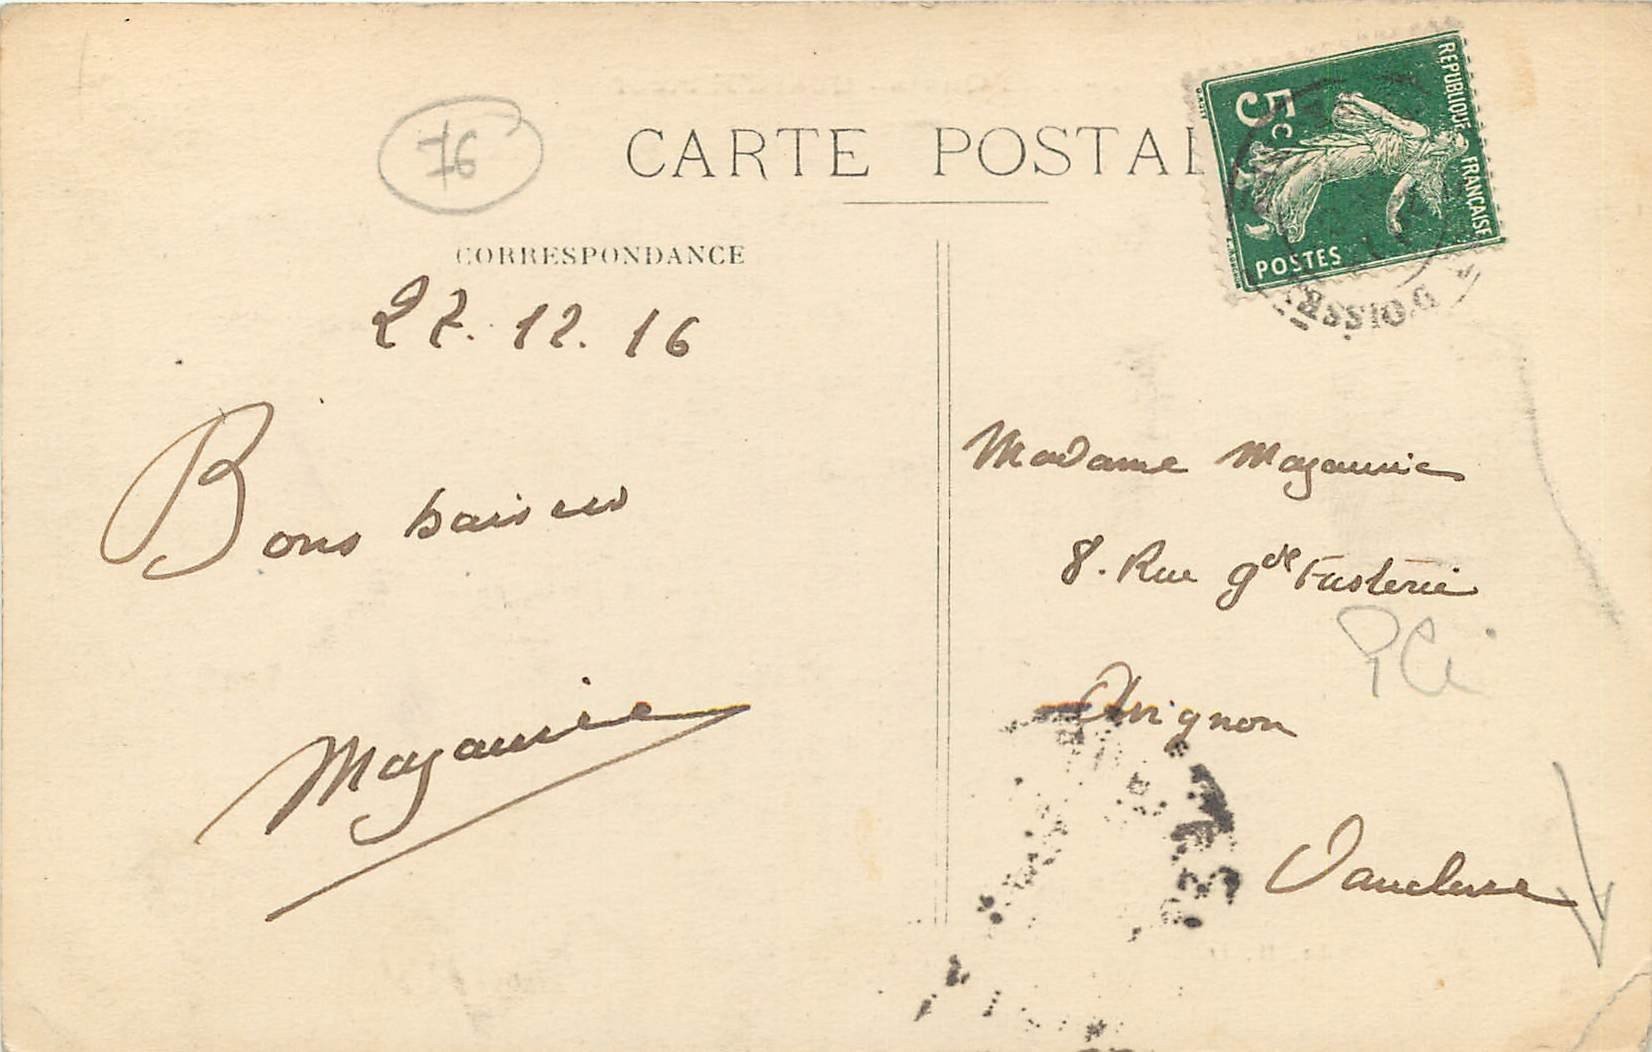 76
CARTE POSTAL
RÉPUBLIQUE FRANÇAISE
5c
POSTES
CORRESPONDANCE
27.12.16
Bons baisers
Mazaurie
Madame Mazaurie
8. Rue gde Fusterie
Avignon
Vaucluse